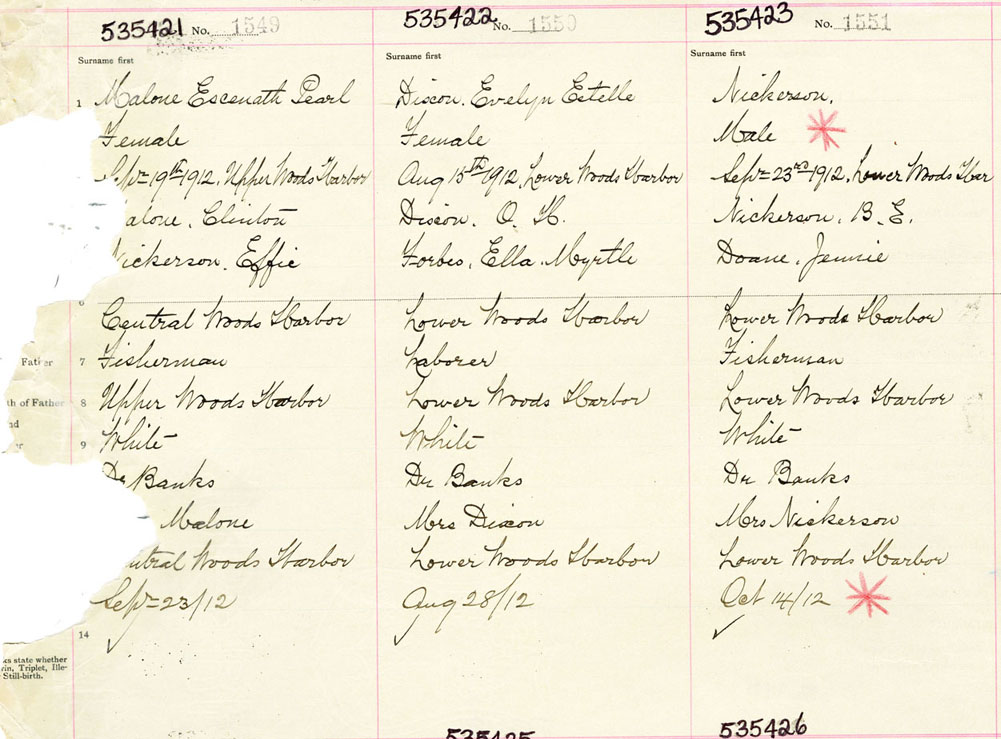 535421 No. 1549
Surname first
1 Malone Escenath Pearl
Female
Sept 19th 1912. Upper Woods Harbor
alone. Clinton
Nickerson. Effie
6
Central Woods Harbor
Father 7 Fisherman
th of Father 8 Upper Woods Harbor
nd
9 White
Dr Banks
Malone
entral Woods Harbor
Sept 23/12
14
ks state whether
in, Triplet, Ille-
Still-birth.
535422 No. 1550
Surname first
Dixon. Evelyn Estelle
Female
Aug 15th 1912. Lower Woods Harbor
Dixon. O. H.
Forbes, Ella Myrtle
Lower Woods Harbor
Laborer
Lower Woods Harbor
White
Dr Banks
Mrs Dixon
Lower Woods Harbor
Aug 28/12
535425
535423 No. 1551
Surname first
Nickerson.
Male
Sept 23rd 1912. Lower Woods Har
Nickerson. B. E.
Doane, Jennie
Lower Woods Harbor
Fisherman
Lower Woods Harbor
White
Dr Banks
Mrs Nickerson
Lower Woods Harbor
Oct 14/12
535426